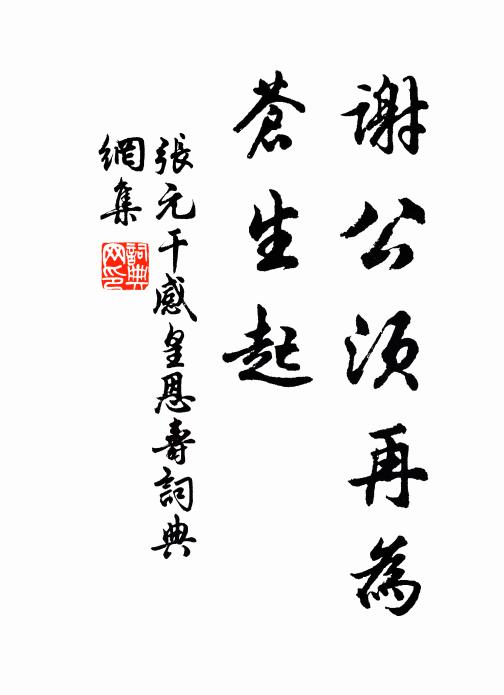 謝公須再為
蒼生起
張元干感皇恩壽詞典
網集
詞典
网印